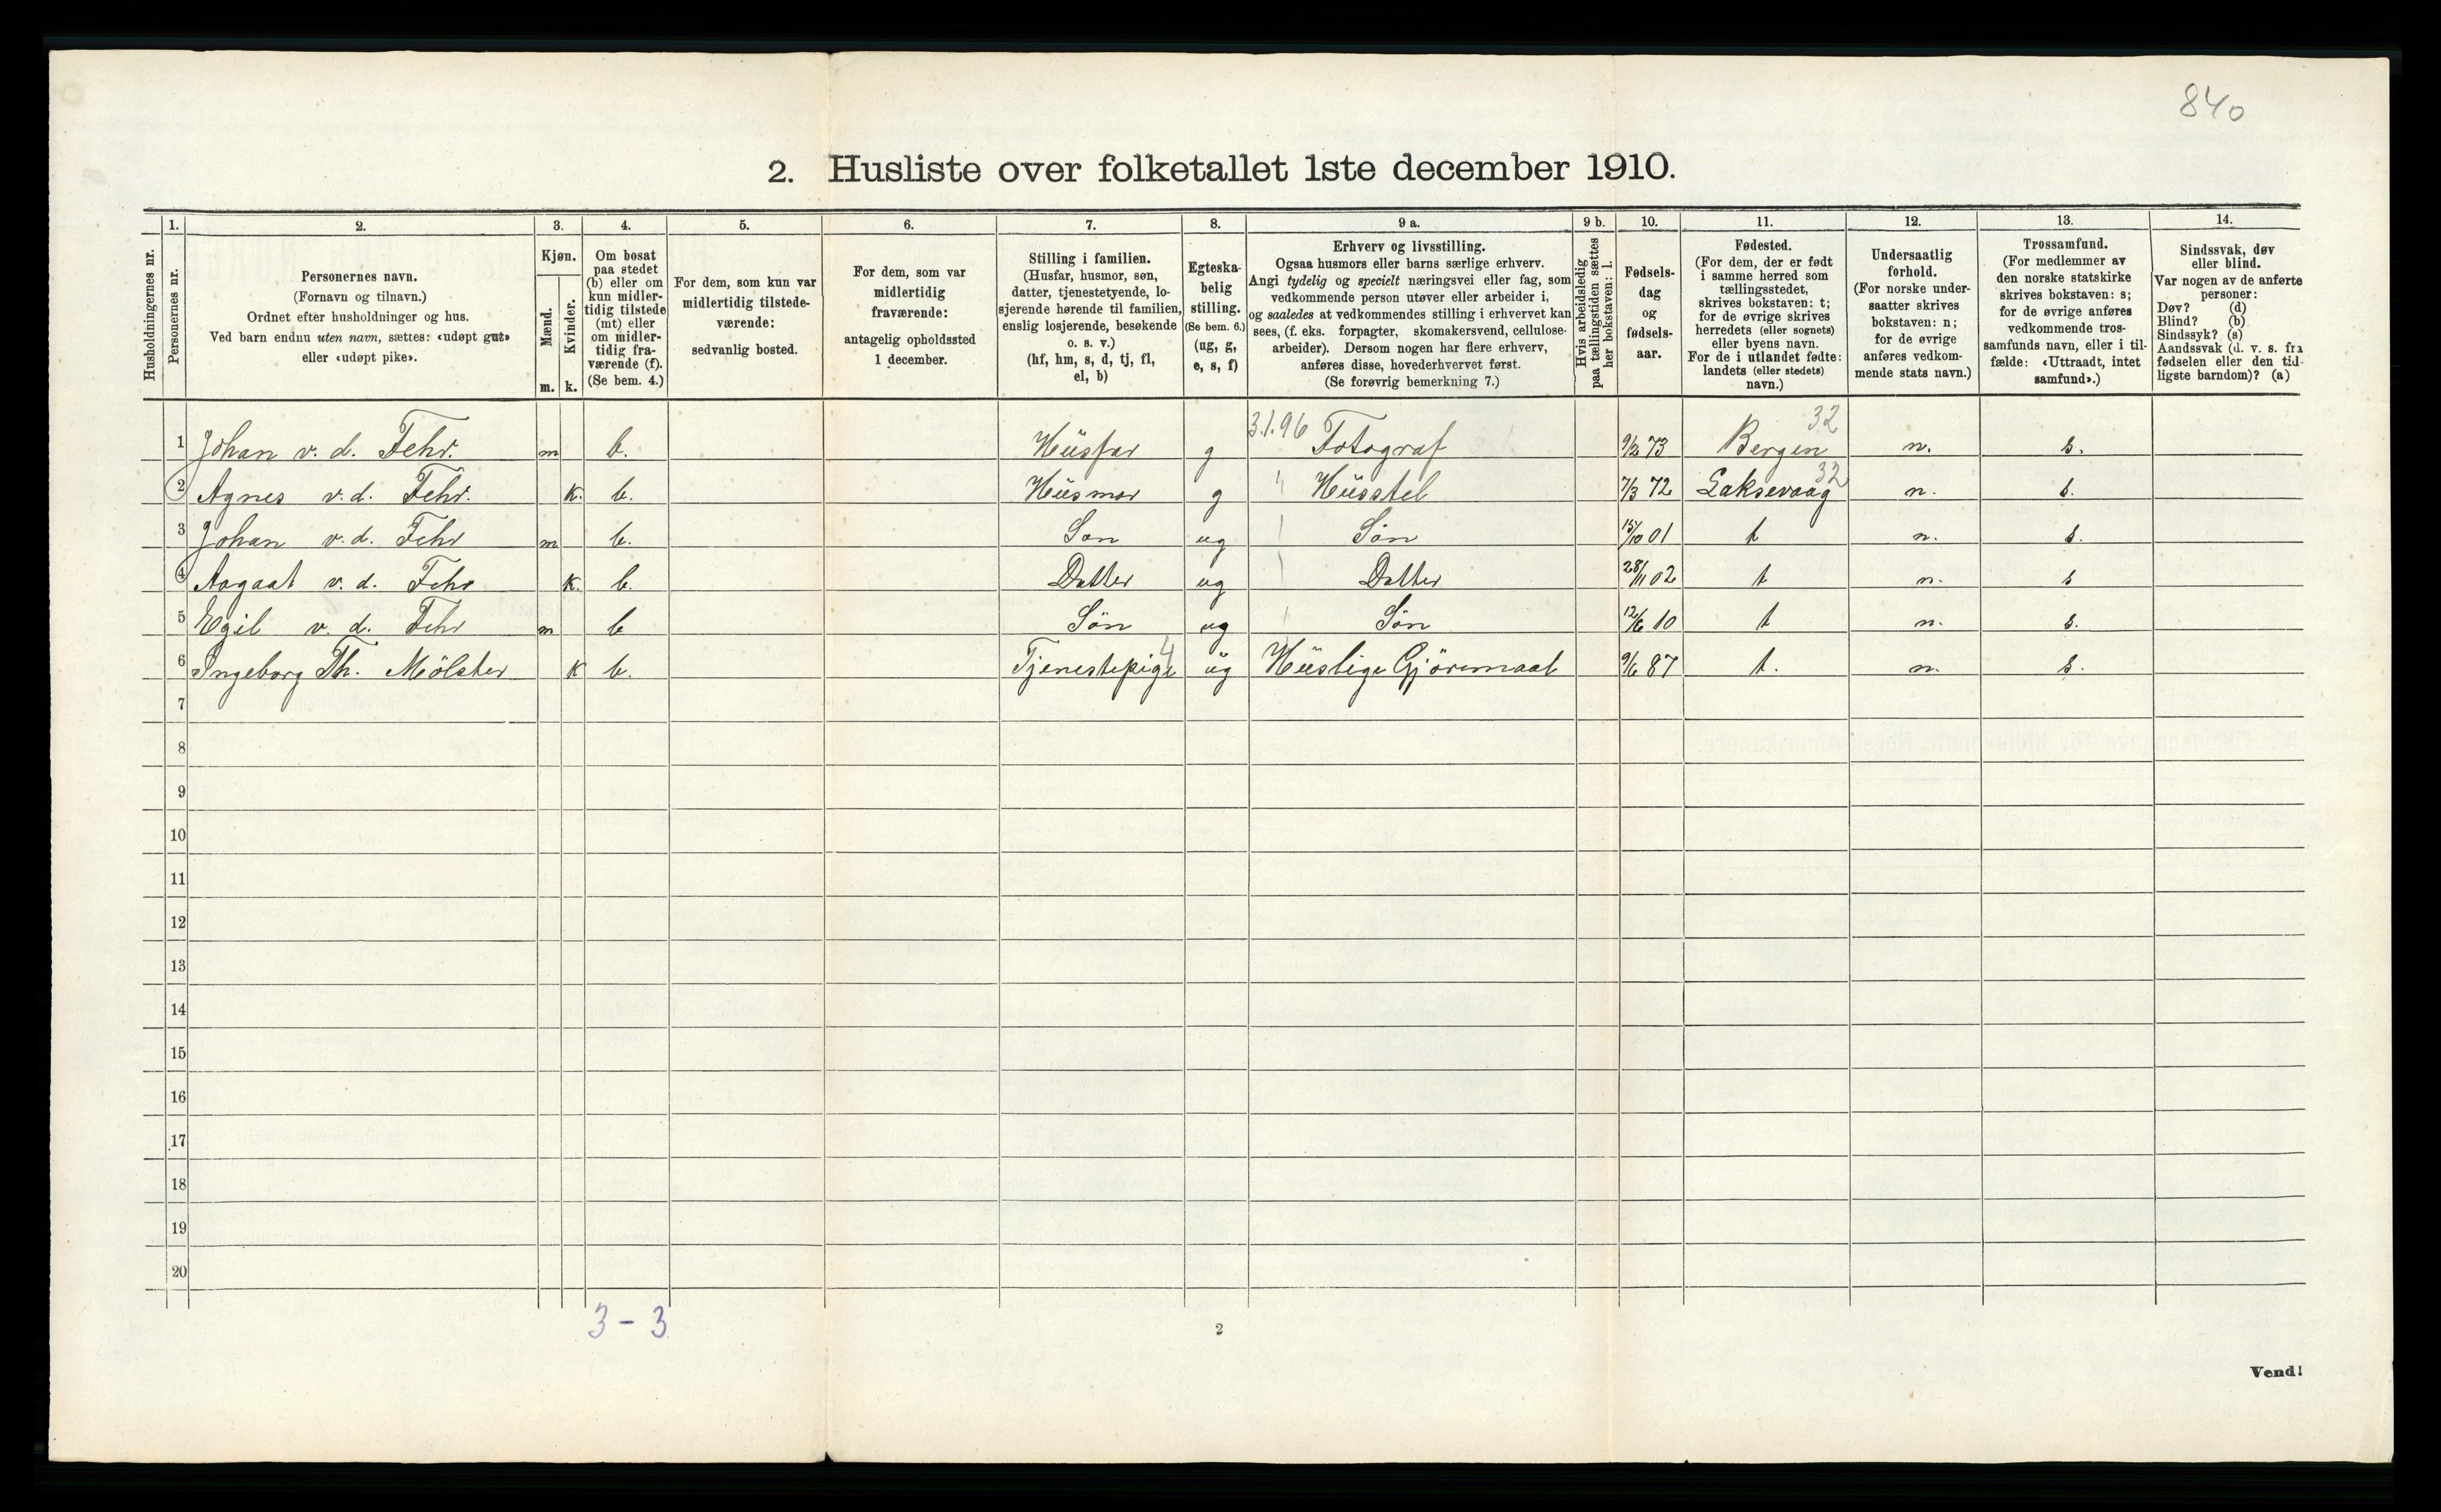 840
2. Husliste over folketallet 1ste december 1910.
Husholdningernes nr.
1.
Personernes nr.
2.
Personernes navn.
(Fornavn og tilnavn.)
Ordnet efter husholdninger og hus.
Ved barn endnu uten navn, sættes: «udøpt gut»
eller «udøpt pike».
3.
Kjøn.
Mænd.
m.
Kvinder.
k.
4.
Om bosat
paa stedet
(b) eller om
kun midler-
tidig tilstede
(mt) eller
om midler-
tidig fra-
værende (f).
(Se bem. 4.)
5.
For dem, som kun var
midlertidig tilstede-
værende:
sedvanlig bosted.
6.
For dem, som var
midlertidig
fraværende:
antagelig opholdssted
1 december.
7.
Stilling i familien.
(Husfar, husmor, søn,
datter, tjenestetyende, lo-
sjerende hørende til familien,
enslig losjerende, besøkende
o. s. v.)
(hf, hm, s, d, tj, fl,
el, b)
8.
Egteska-
belig
stilling.
(Se bem. 6.)
(ug, g,
e, s, f)
9 a.
Erhverv og livsstilling.
Ogsaa husmors eller barns særlige erhverv.
Angi tydelig og specielt næringsvei eller fag, som
vedkommende person utøver eller arbeider i,
og saaledes at vedkommendes stilling i erhvervet kan
sees, (f. eks. forpagter, skomakersvend, cellulose-
arbeider). Dersom nogen har flere erhverv,
anføres disse, hovederhvervet først.
(Se forøvrig bemerkning 7.)
9 b.
Hvis arbeidsledig
paa tællingstiden sættes
her bokstaven: l.
10.
Fødsels-
dag
og
fødsels-
aar.
11.
Fødested.
(For dem, der er født
i samme herred som
tællingsstedet,
skrives bokstaven: t;
for de øvrige skrives
herredets (eller sognets)
eller byens navn.
For de i utlandet fødte:
landets (eller stedets)
navn.)
12.
Undersaatlig
forhold.
(For norske under-
saatter skrives
bokstaven: n;
for de øvrige
anføres vedkom-
mende stats navn.)
13.
Trossamfund.
(For medlemmer av
den norske statskirke
skrives bokstaven: s;
for de øvrige anføres
vedkommende tros-
samfunds navn, eller i til-
fælde: «Uttraadt, intet
samfund».)
14.
Sindssvak, døv
eller blind.
Var nogen av de anførte
personer:
Døv? (d)
Blind? (b)
Sindssyk? (s)
Aandssvak (d. v. s. fra
fødselen eller den tid-
ligste barndom)? (a)
3.1.96 32
1 Johan v. d. Fehr. m b. Hüsfar g Fotograf 9/2 73 Bergen n. s.
32
2 Agnes v. d. Fehr. K. b. Hüsmor g Hüsstel 7/3 72 Laksevaag n. s.
3 Johan v. d. Fehr m b. Søn ug Søn 15/10 01 t n. s.
4 Aagaat v. d. Fehr K. b. Datter ug Datter 28/11 02 t n. s
5 Egil v. d. Fehr m b Søn ug Søn 12/6 10 t n. s.
4
6 Ingeborg Th. Mölster K b. Tjenestepige üg Hüslige Gjöremaal 9/6 87 t. n. s.
7
8
9
10
11
12
13
14
15
16
17
18
19
20
3 - 3
2
Vend!